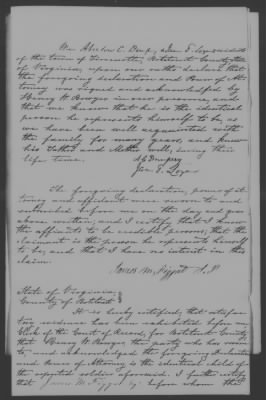 We Abselom C. Dempsey, Jno. T. Loyer residents
of the town of Fincastle, Botetourt County State
of Virginia, upon our oaths declare that
the foregoing declaration and Power of At-
torney was signed and acknowledged by
Henry W Bowyer in our presence, and
that we know that he is the identical
person he represents himself to be, as
we have been well acquainted with
the family for many years, and knew
his Father and Mother well, during their
life time.
A C Dempsey
Jno. T. Loyer
The foregoing declaration, power of at-
torney and affidavit were sworn to and
subscribed before me on the day and year
above written; and I certify that I know
the affiants to be credible persons; that the
claimant is the person he represents himself
to be, and that I have no interest in this
claim.
James M. Figgat N.P.
State of Virginia,
County of Botetourt
It is hereby certified, that satisfac-
tory evidence has been exhibited before me
Clerk of the Court of Record, for Botetourt County
that Henry W Bowyer the party who has sworn
to, and acknowledged the foregoing Declaration
and Power of Attorney is the identical child of
the reputed soldier aforesaid. I further certify
that James M. Figgat Esq. before whom the